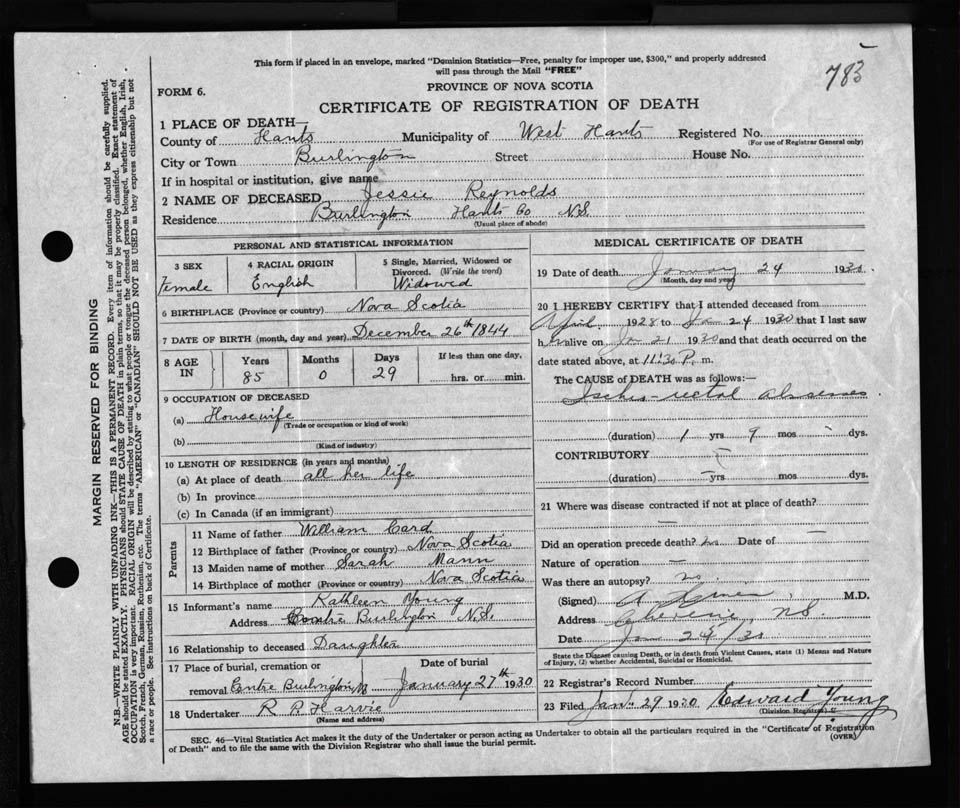 This form if placed in an envelope, marked "Dominion Statistics—Free, penalty for improper use, $300," and properly addressed
will pass through the Mail "FREE"
783
FORM 6.
PROVINCE OF NOVA SCOTIA
CERTIFICATE OF REGISTRATION OF DEATH
1 PLACE OF DEATH—
County of Hants Municipality of West Hants Registered No.
(For use of Registrar General only)
City or Town Burlington Street House No.
If in hospital or institution, give name
2 NAME OF DECEASED Jessie Reynolds
Residence Burlington Hants Co N.S.
(Usual place of abode)
PERSONAL AND STATISTICAL INFORMATION
3 SEX
Female
4 RACIAL ORIGIN
English
5 Single, Married, Widowed or
Divorced. (Write the word)
Widowed
6 BIRTHPLACE (Province or country) Nova Scotia
7 DATE OF BIRTH (month, day and year) December 26th 1844
8 AGE IN
Years Months Days If less than one day,
85 0 29 hrs. or min.
9 OCCUPATION OF DECEASED
(a) Housewife
(Trade or occupation or kind of work)
(b)
(Kind of industry)
10 LENGTH OF RESIDENCE (in years and months)
(a) At place of death all her life
(b) In province
(c) In Canada (if an immigrant)
Parents
11 Name of father William Card
12 Birthplace of father (Province or country) Nova Scotia
13 Maiden name of mother Sarah Mann
14 Birthplace of mother (Province or country) Nova Scotia
15 Informant's name Kathleen Young
Address Centre Burlington N.S.
16 Relationship to deceased Daughter
17 Place of burial, cremation or Date of burial
removal Centre Burlington NS January 27th 1930
18 Undertaker R P Harvie
(Name and address)
MEDICAL CERTIFICATE OF DEATH
19 Date of death January 24 1930.
(Month, day and year)
20 I HEREBY CERTIFY that I attended deceased from
April 1928 to Ja 24 1930 that I last saw
her alive on Ja 21 1930 and that death occurred on the
date stated above, at 11:30 P. m.
The CAUSE OF DEATH was as follows:—
Ischio-rectal abscess
(duration) 1 yrs 9 mos - dys.
CONTRIBUTORY
(duration) yrs mos dys.
21 Where was disease contracted if not at place of death?
Did an operation precede death? no Date of —
Nature of operation —
Was there an autopsy? no.
(Signed) M.D.
Address Cheverie, N.S.
Date Jan 24/30
State the Disease causing Death, or in death from Violent Causes, state (1) Means and Nature
of Injury, (2) whether Accidental, Suicidal or Homicidal.
22 Registrar's Record Number
23 Filed Jan. 29 1930 Edward Young
(Division Registrar)
SEC. 46—Vital Statistics Act makes it the duty of the Undertaker or person acting as Undertaker to obtain all the particulars required in the "Certificate of Registration
of Death" and to file the same with the Division Registrar who shall issue the burial permit.
(OVER)
MARGIN RESERVED FOR BINDING
N.B.—WRITE PLAINLY WITH UNFADING INK—THIS IS A PERMANENT RECORD. Every item of information should be carefully supplied.
AGE should be stated EXACTLY. PHYSICIANS should STATE CAUSE OF DEATH in plain terms, so that it may be properly classified. Exact statement of
OCCUPATION is very important. RACIAL ORIGIN will be described by stating to what people or tongue the deceased person belonged, whether English, Irish,
Scotch, French, German, Russian, Ruthenian, etc. The terms "AMERICAN" or "CANADIAN" SHOULD NOT BE USED as they express citizenship but not
a race or people. See instructions on back of Certificate.